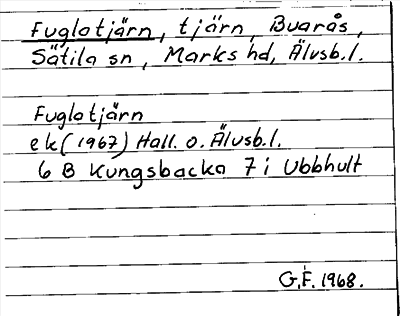 Fuglatjärn, tjärn, Buarås,
Sätila sn, Marks hd, Älvsb.l.
Fuglatjärn
ek (1967) Hall. o. Älvsb.l.
6 B Kungsbacka 7 i Ubbhult
G.F. 1968.